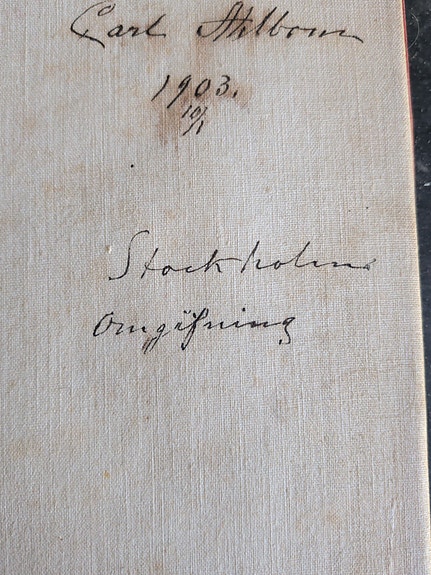 Carl Ahlbom
1903.
10/1
Stockholms
Omgifning